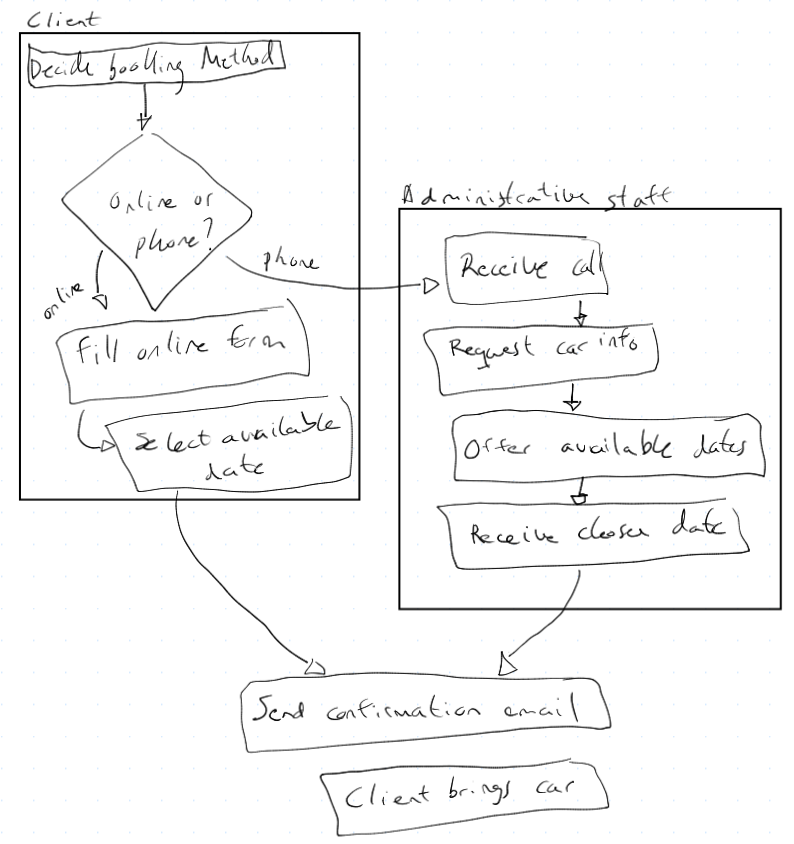 Client
Decide booking Method
online or
phone?
online
phone
Fill online form
Select available
date
Administrative staff
Receive call
Request car info
Offer available dates
Receive chosen date
Send confirmation email
Client brings car